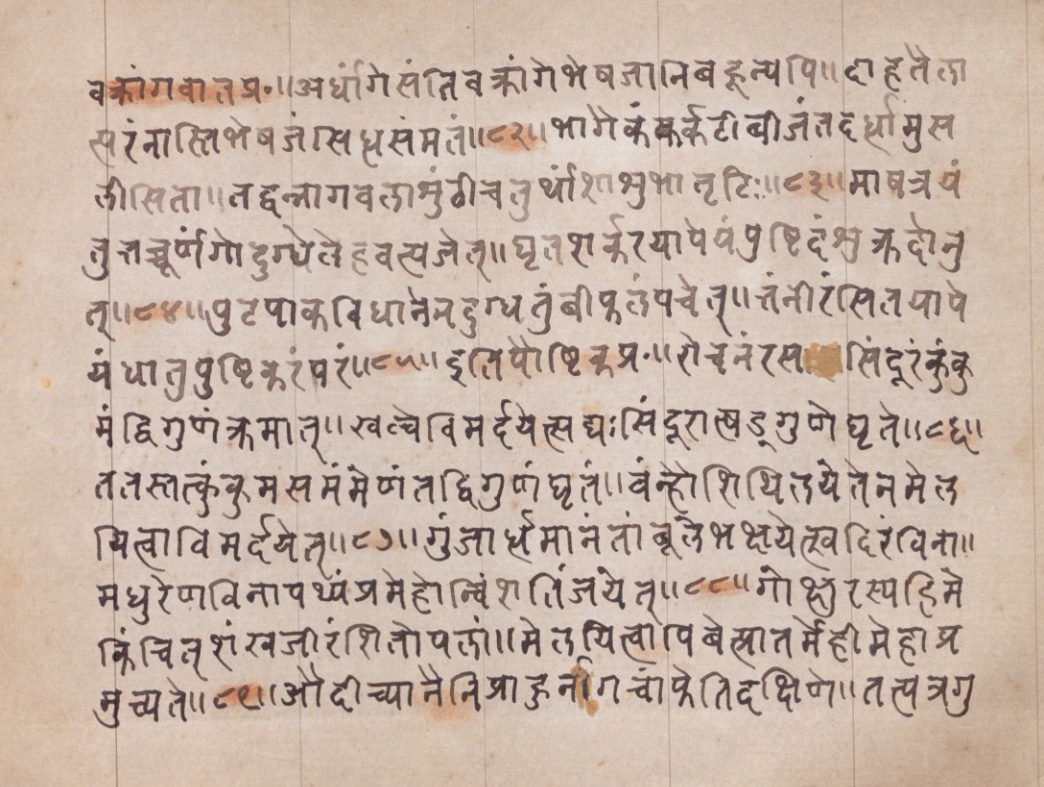 वक्रांगवातप्र॰॥अर्धांगेसंतिवक्रांगेभेषजानिबहून्यपि॥दाहतैला
त्परंनास्तिभेषजंसिधसंमतं॥८२॥भागैकंकर्कटीबीजंतदर्धामुस
लीसिता॥तद्वन्नागवलाशुंठीचतुर्थांशाशुभातृटिः॥८३॥माषत्रयं
तुतच्चूर्णंगोदुग्धेलेहवत्पचेत्॥घृतशर्करयापेयंपुष्टिदंशुक्रदोनु
त्॥८४॥पुटपाकविधानेनदुग्धतुंबीफलंपचेत्॥तंनीरंसितयापे
यंधातुपुष्टिकरंपरं॥८५॥इतिपौष्टिकप्र॰॥रोचनंरस सिंदूरंकुंकु
मंद्विगुणंक्रमात्॥खल्वेविमर्दयेत्सद्यःसिंदूरात्षड्गुणेघृते॥८६॥
ततस्तत्कुंकुमसमंमेणंतद्विगुणंघृतं॥वंन्हौशिथिलयेतेनमेल
यित्वाविमर्दयेत्॥८७॥गुंजार्धमानंतांबूलेभक्षयेत्खदिरंविना॥
मधुरेणविनापथ्यंप्रमेहान्विंशतिंजयेत्॥८८॥गोक्षुरस्यहिमे
किंचित्शंखजीरंशितोपलां॥मेलयित्वापिबेत्प्रातर्मेहीमेहात्प्र
मुच्यते॥८९॥औदीच्यानैनिप्राहुर्नागचांफेतिदक्षिणे॥तत्पत्रगु